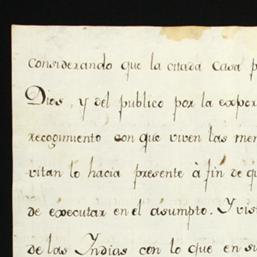 considerando que la citada Casa p
Dios, y del publico por la expor
recogimiento con que viven las men
vitan lo hacia presente à fin de qu
de executar en el asumpto. Y vis
de las Indias con lo que en su